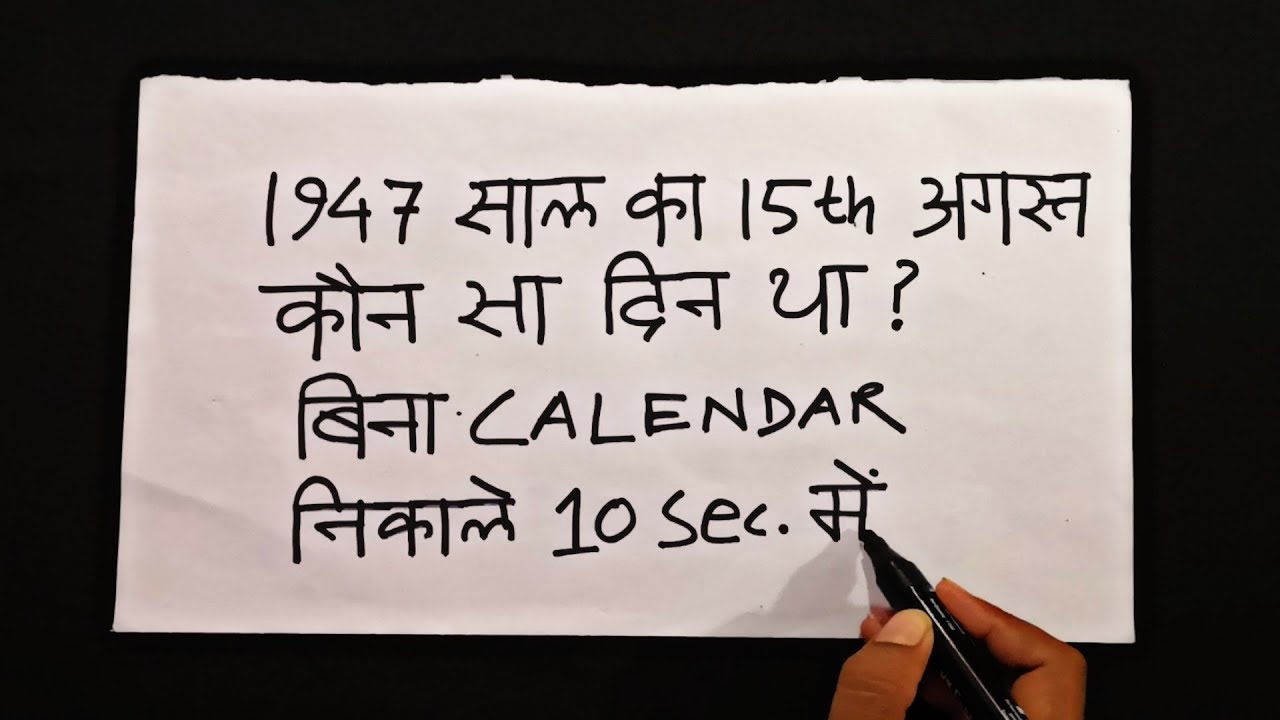 1947 साल का 15th अगस्त
कौन सा दिन था ?
बिना CALENDAR
निकाले 10 Sec. में